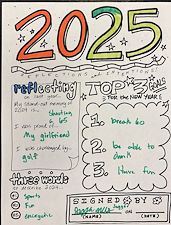 2025
REFLECTIONS and INTENTIONS
reflecting
on last year.
My stand-out memory of
2024 is...
Shooting
65
I was proud of...
My girlfriend
I was challenged by...
golf
three words
to describe 2024...
Sports
Fun
Energetic
TOP 3
FOR the NEW YEAR!
1. break 60
2. be able to
dunk
3. Have fun
SIGNED BY
(NAME) (DATE)